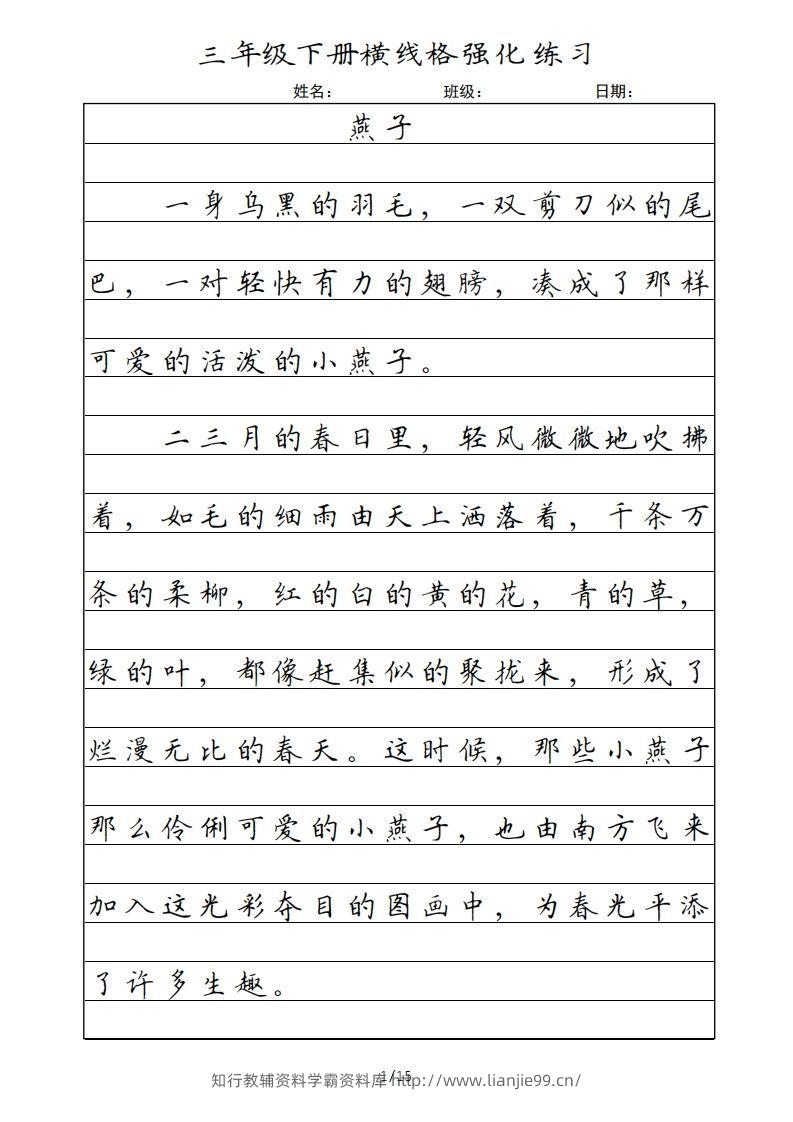 三年级下册横线格强化练习
姓名： 班级： 日期：
燕子
一身乌黑的羽毛，一双剪刀似的尾
巴，一对轻快有力的翅膀，凑成了那样
可爱的活泼的小燕子。
二三月的春日里，轻风微微地吹拂
着，如毛的细雨由天上洒落着，千条万
条的柔柳，红的白的黄的花，青的草，
绿的叶，都像赶集似的聚拢来，形成了
烂漫无比的春天。这时候，那些小燕子
那么伶俐可爱的小燕子，也由南方飞来
加入这光彩夺目的图画中，为春光平添
了许多生趣。
1/15
知行教辅资料学霸资料库 http://www.lianjie99.cn/